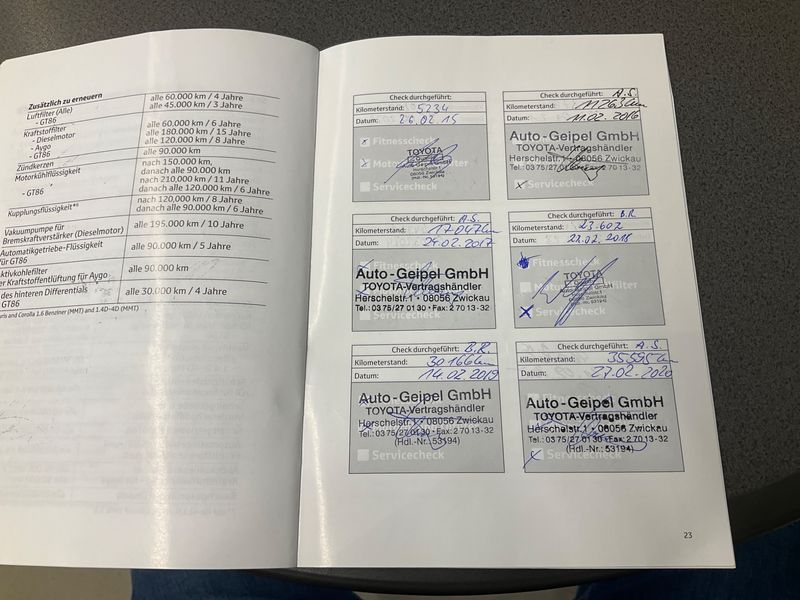 Zusätzlich zu erneuern
alle 60.000 km / 4 Jahre
alle 45.000 km / 3 Jahre
Luftfilter (Alle)
- GT86
alle 60.000 km / 6 Jahre
Kraftstofffilter
- Dieselmotor
alle 180.000 km / 15 Jahre
- Aygo
alle 120.000 km / 8 Jahre
- GT86
Zündkerzen
alle 90.000 km
Motorkühlflüssigkeit
nach 150.000 km,
danach alle 90.000 km
nach 210.000 km / 11 Jahre
- GT86
danach alle 120.000 km / 6 Jahre
Kupplungsflüssigkeit*⁶
nach 120.000 km / 8 Jahre
danach alle 90.000 km / 6 Jahre
Vakuumpumpe für
Bremskraftverstärker (Dieselmotor)
alle 195.000 km / 10 Jahre
Automatikgetriebe-Flüssigkeit
für GT86
alle 90.000 km / 5 Jahre
Aktivkohlefilter
er Kraftstoffentlüftung für Aygo
alle 90.000 km
des hinteren Differentials
GT86
alle 30.000 km / 4 Jahre
uris and Corolla 1.6 Benziner (MMT) and 1.4D-4D (MMT)
Check durchgeführt:
Kilometerstand: 5234
Datum: 26.02.15
Fitnesscheck
TOYOTA
Servicecheck
Check durchgeführt: A.S.
Kilometerstand: 11263km
Datum: 11.02.2016
Auto-Geipel GmbH
TOYOTA-Vertragshändler
Herschelstr. 08056 Zwickau
Servicecheck
Check durchgeführt: A.S.
Kilometerstand: 17047km
Datum: 24.02.2017
Auto-Geipel GmbH
TOYOTA-Vertragshändler
Herschelstr.1 • 08056 Zwickau
Tel.: 03 75/27 01 30 • Fax: 2 70 13-32
Servicecheck
Check durchgeführt: B.R.
Kilometerstand: 23.602
Datum: 22.02.2018
Fitnesscheck
TOYOTA
Servicecheck
Check durchgeführt: B.R.
Kilometerstand: 30166km
Datum: 14.02.2019
Auto-Geipel GmbH
TOYOTA-Vertragshändler
Herschelstr.1 • 08056 Zwickau
Tel.: 03 75/27 01 30 • Fax: 2 70 13-32
(Hdl.-Nr.: 53194)
Servicecheck
Check durchgeführt: A.S.
Kilometerstand: 35595km
Datum: 27.02.2020
Auto-Geipel GmbH
TOYOTA-Vertragshändler
Herschelstr.1 • 08056 Zwickau
Tel.: 03 75/27 01 30 • Fax: 2 70 13-32
(Hdl.-Nr.: 53194)
Servicecheck
23